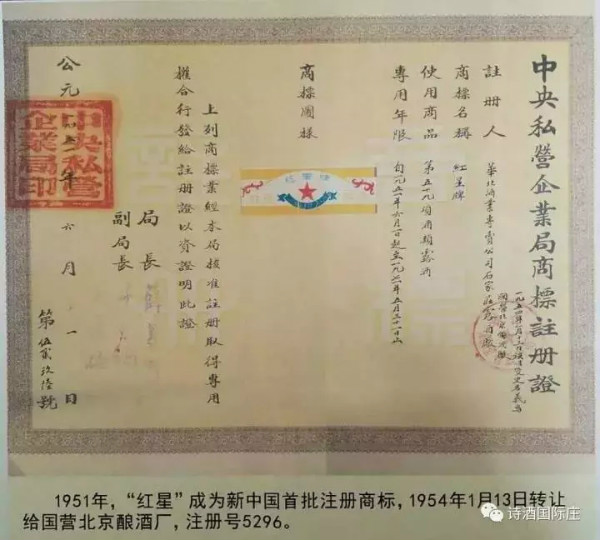 中央私營企業局商標註冊證
國營北京釀酒廠
註冊人 華北酒業專賣公司石家莊露酒廠
商標名稱 紅星牌
使用商品 第五十九項酒類露酒
專用年限 自一九五一年六月一日起至一九七一年五月三十一日止
商標圖樣
上列商標業經本局核准註冊取得專用
權合行發給註冊證以資證明此證
局長
副局長
公元一九五一年六月一日
中央私營企業局印
第伍貳玖陸號
1951年，“红星”成为新中国首批注册商标，1954年1月13日转让
给国营北京酿酒厂，注册号5296。
诗酒国际庄